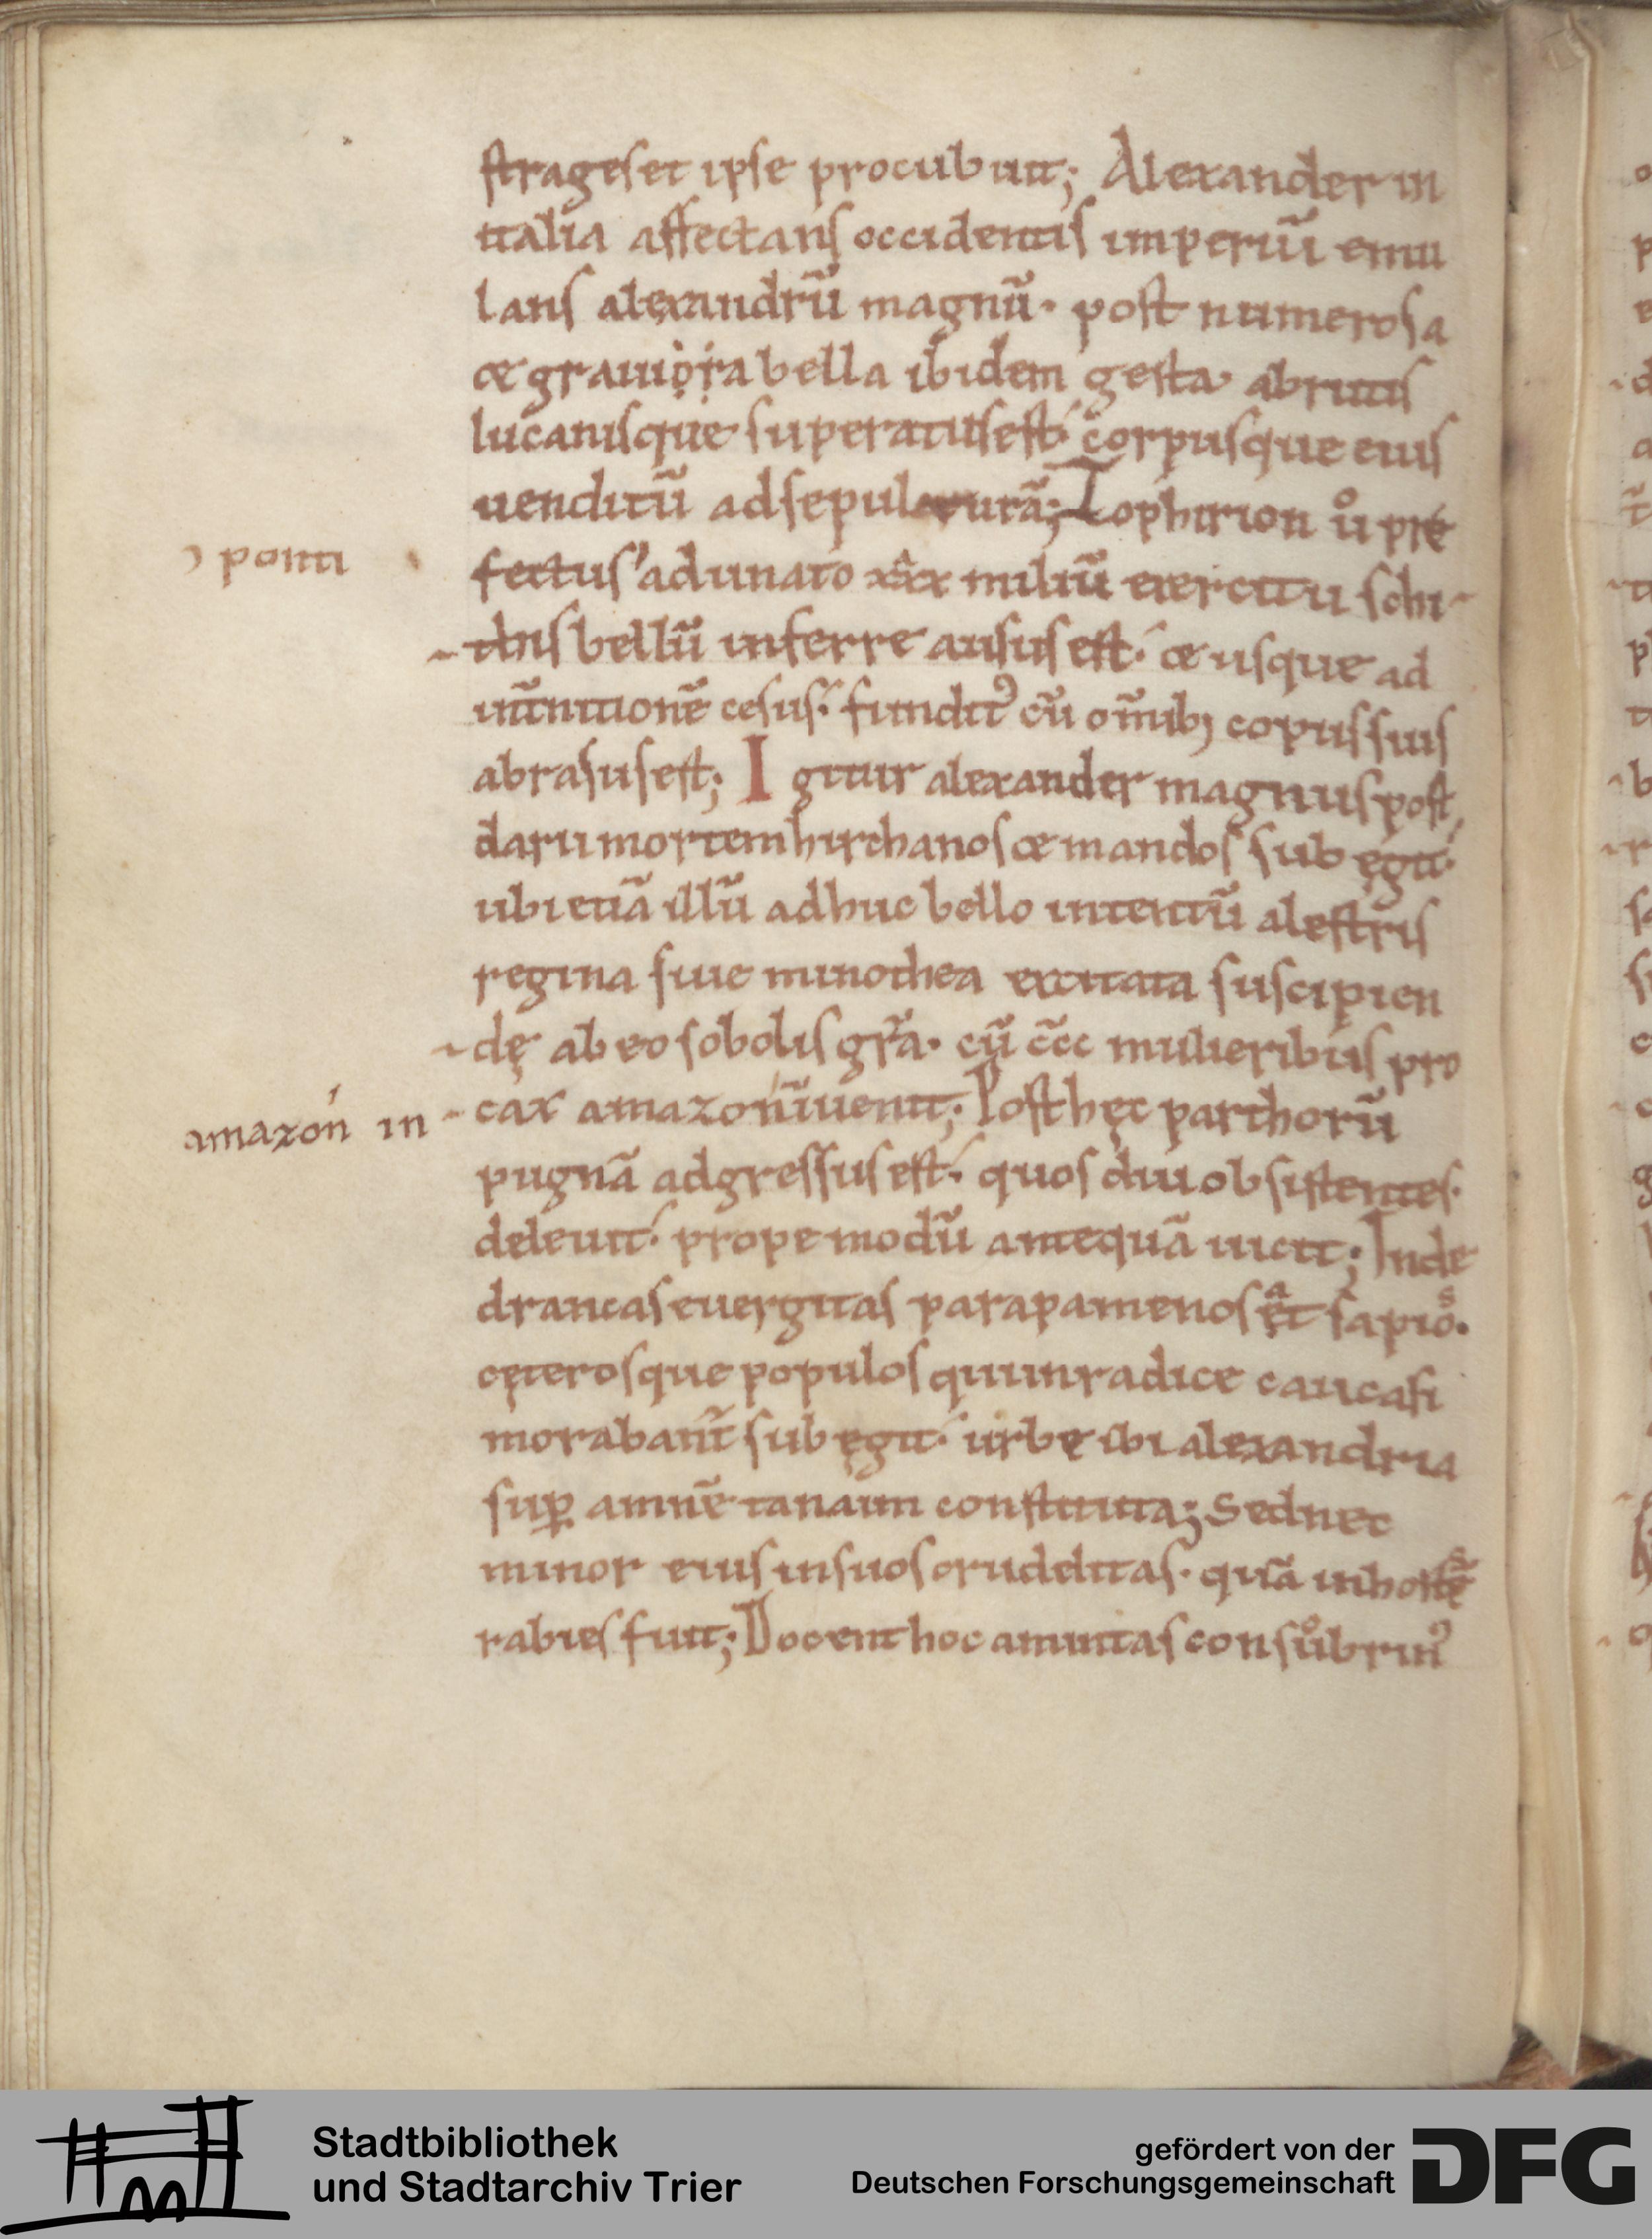 strages et ipse procubuit; Alexander in
italia affectans occidentis imperiũ emu
lans alexandrũ magnũ. post numerosa
& grauiora bella ibidem gesta abrutiis
lucanisque superatus est. corpusque eius
uenditũ ad sepulturã; Zophirion uͦ pre
ɔ ponti
fectus adunato xxx miliũ exercitu schi
this bellũ inferre ausus est. & usque ad
int̃nitionẽ cesus. fundit᾿ cũ om̃ib; copiis suis
abrasus est; Igitur alexander magnus post
darii mortem hirchanos & mandos subegit.
ubi etiã illũ adhuc bello intentũ alestris
regina siue minothea excitata suscipien
dę ab eo sobolis gr̃a. cũ c̃cc mulieribus pro
amazon in
cax amazonũ inuenit; Post hęc parthorũ
pugnã adgressus est. quos diu obsistentes.
deleuit. propemodũ antequã uicit; Inde
drancas euergitas parapamenos et sapios.
cęterosque populos qui in radice caucasi
morabant̃ subegit. urbe ibi alexandria
sup amnẽ tanaim constituta; Sed nec
minor eius in suos crudelitas. quã in hostẽ
rabies fuit; Docent hoc amintas consubrin᾿
Stadtbibliothek
und Stadtarchiv Trier
gefördert von der
Deutschen Forschungsgemeinschaft
DFG